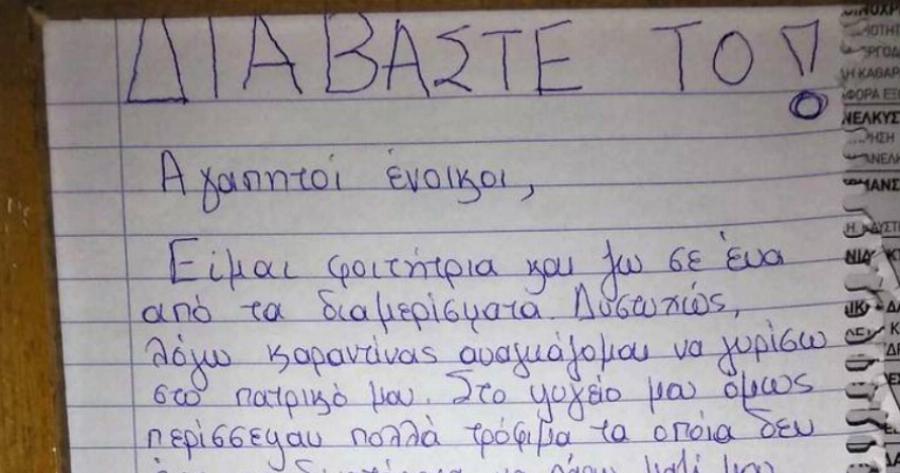 ΔΙΑΒΑΣΤΕ ΤΟ!
Αγαπητοί ένοικοι,
Είμαι φοιτήτρια και ζω σε ένα
από τα διαμερίσματα. Δυστυχώς,
λόγω καραντίνας αναγκάζομαι να γυρίσω
στο πατρικό μου. Στο ψυγείο μου όμως
περίσσεψαν πολλά τρόφιμα τα οποία δεν
να πάρω μαζί μου
ΚΑΘΑΡ
ΦΟΡΑ ΕΞ
ΝΕΛΚΥΣ